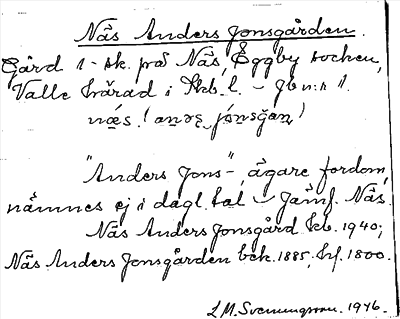 Näs Anders Jonsgården.
Gård 1-sk. på Näs, Eggby socken,
Valle härad i Skb. l. – Jb n:r 1.
næ̀s. (an̥ɷʂ jónsğaɳ)
"Anders Jons"-, ägare fordom,
nämnes ej i dagl. tal – Jämf. Näs.
Näs Anders Jonsgård kb. 1940;
Näs Anders Jonsgården bck. 1885, hf. 1800.
L M. Svenungsson. 1946.